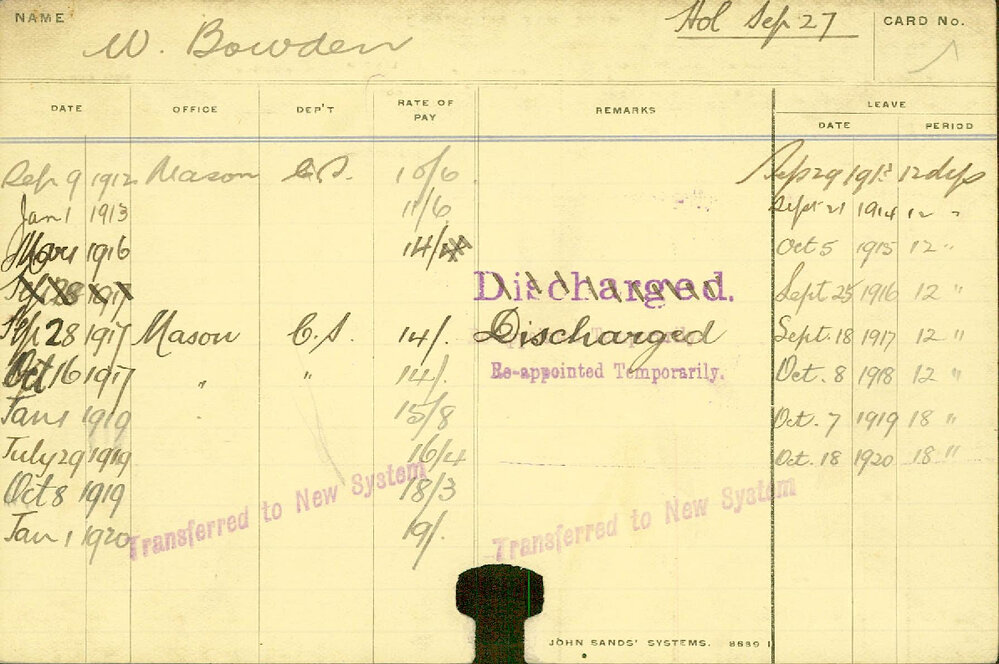 NAME W. Bowden Hol Sep 27 CARD No. 1
LEAVE
DATE OFFICE DEP'T RATE OF PAY REMARKS DATE PERIOD
Sep 9 1912 Mason C.S. 10/6 Sep 29 1913 12 days
Jan 1 1913 11/6 Sept 21 1914 12 "
Mar 1 1916 14/ Oct 5 1915 12 "
28 1917 Discharged. Sept 25 1916 12 "
Sep 28 1917 Mason C.S. 14/. Discharged Sept. 18 1917 12 "
Oct 16 1917 " " 14/. Re-appointed Temporarily. Oct. 8 1918 12 "
Jan 1 1919 15/8 Oct. 7 1919 18 "
July 29 1919 16/4 Oct. 18 1920 18 "
Oct 8 1919 18/3
Jan 1 1920 19/.
Transferred to New System Transferred to New System
JOHN SANDS' SYSTEMS. 8689